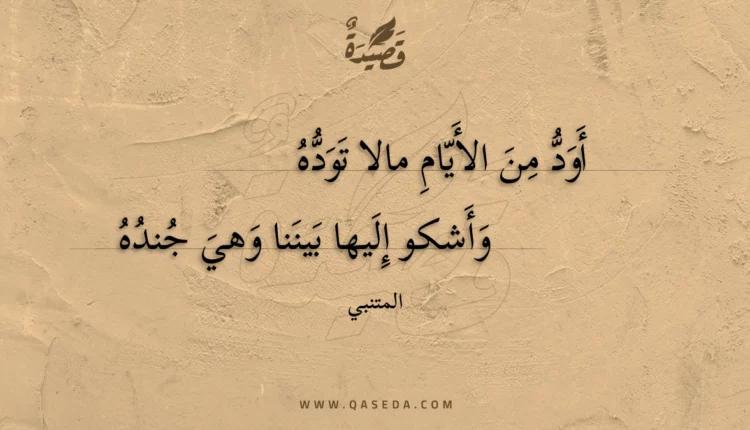 قَصِيْدَةٌ
أَوَدُّ مِنَ الأَيّامِ مالا تَوَدُّهُ
وَأَشكو إِلَيها بَينَنا وَهيَ جُندُهُ
المتنبي
WWW.QASEDA.COM